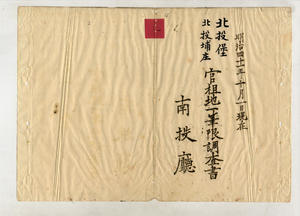 明治四十三年十月一日現在
北投堡
北投埔庄
官租地一筆限調查書
南投廳